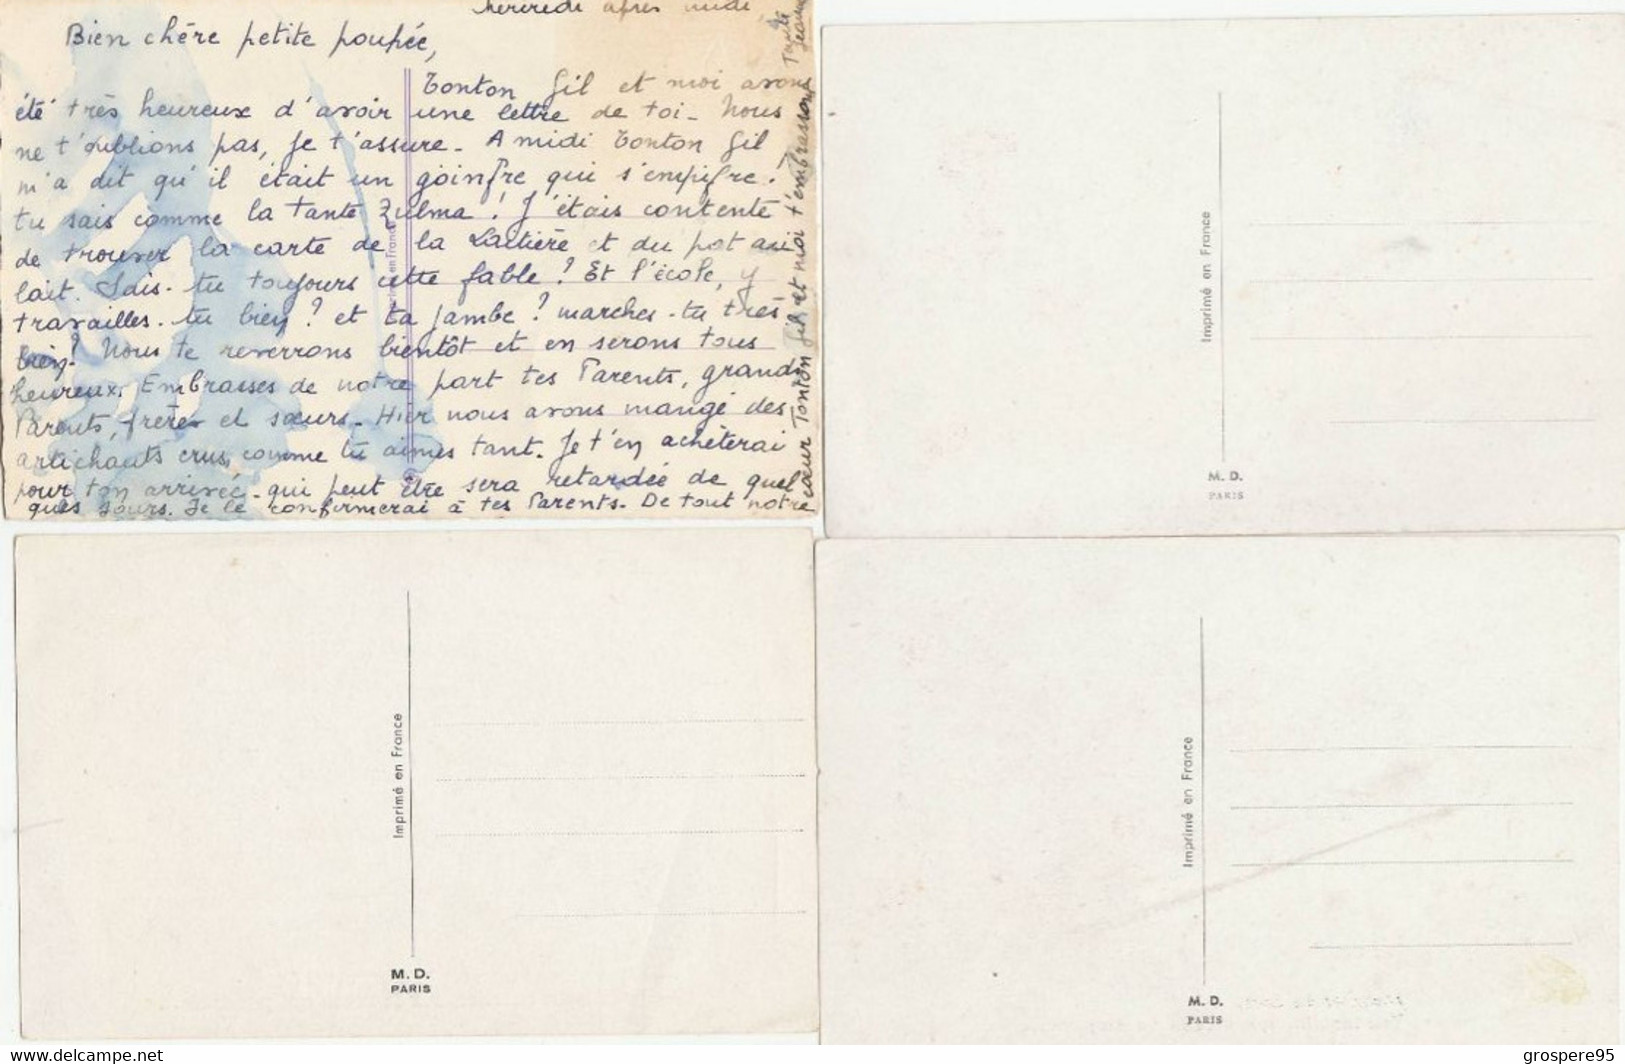 Mercredi après midi,
Bien chère petite poupée,
Tonton Gil et moi avons
été très heureux d'avoir une lettre de toi - Nous
ne t'oublions pas, je t'assure - A midi Tonton Gil
m'a dit qu'il était un goinfre qui s'empifre !
tu sais comme la tante Zulma ! J'étais contente
de trouver la carte de la Laitière et du pot au
lait. Sais-tu toujours cette fable ? Et l'école, y
travailles-tu bien ? et ta jambe ? marches-tu très
bien ? Nous te reverrons bientôt et en serons tous
heureux. Embrasses de notre part tes Parents, grands
Parents, frères et sœurs - Hier nous avons mangé des
artichauts crus, comme tu aimes tant. Je t'en achèterai
pour ton arrivée - qui peut être sera retardée de quel
ques jours. Je le confirmerai à tes Parents - De tout notre
cœur Tonton Gil et moi t'embrassons
Tante
Jeanne
Imprimé en France
Imprimé en France
M. D.
PARIS
Imprimé en France
M. D.
PARIS
Imprimé en France
M. D.
PARIS
https://www.delcampe.net
grospere95